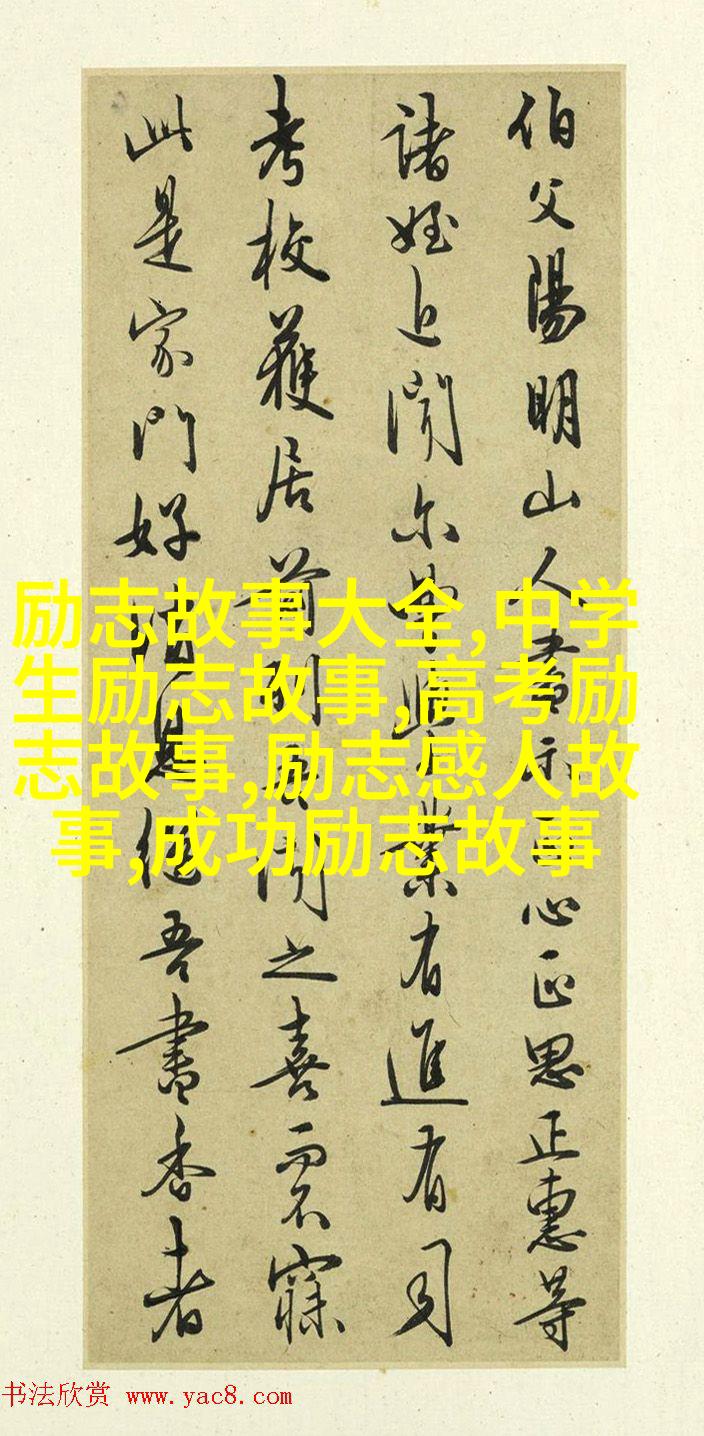 伯父陽明山人書示正心正思正惠等
諸姪近聞尔曹學業有進有司
考校獲居前列吾聞之喜而不寐
此是家門好消息繼吾書香者
励志故事大全,中学
生励志故事,高考励
志故事,励志感人故
事,成功励志故事
书法欣赏 www.yac8.com